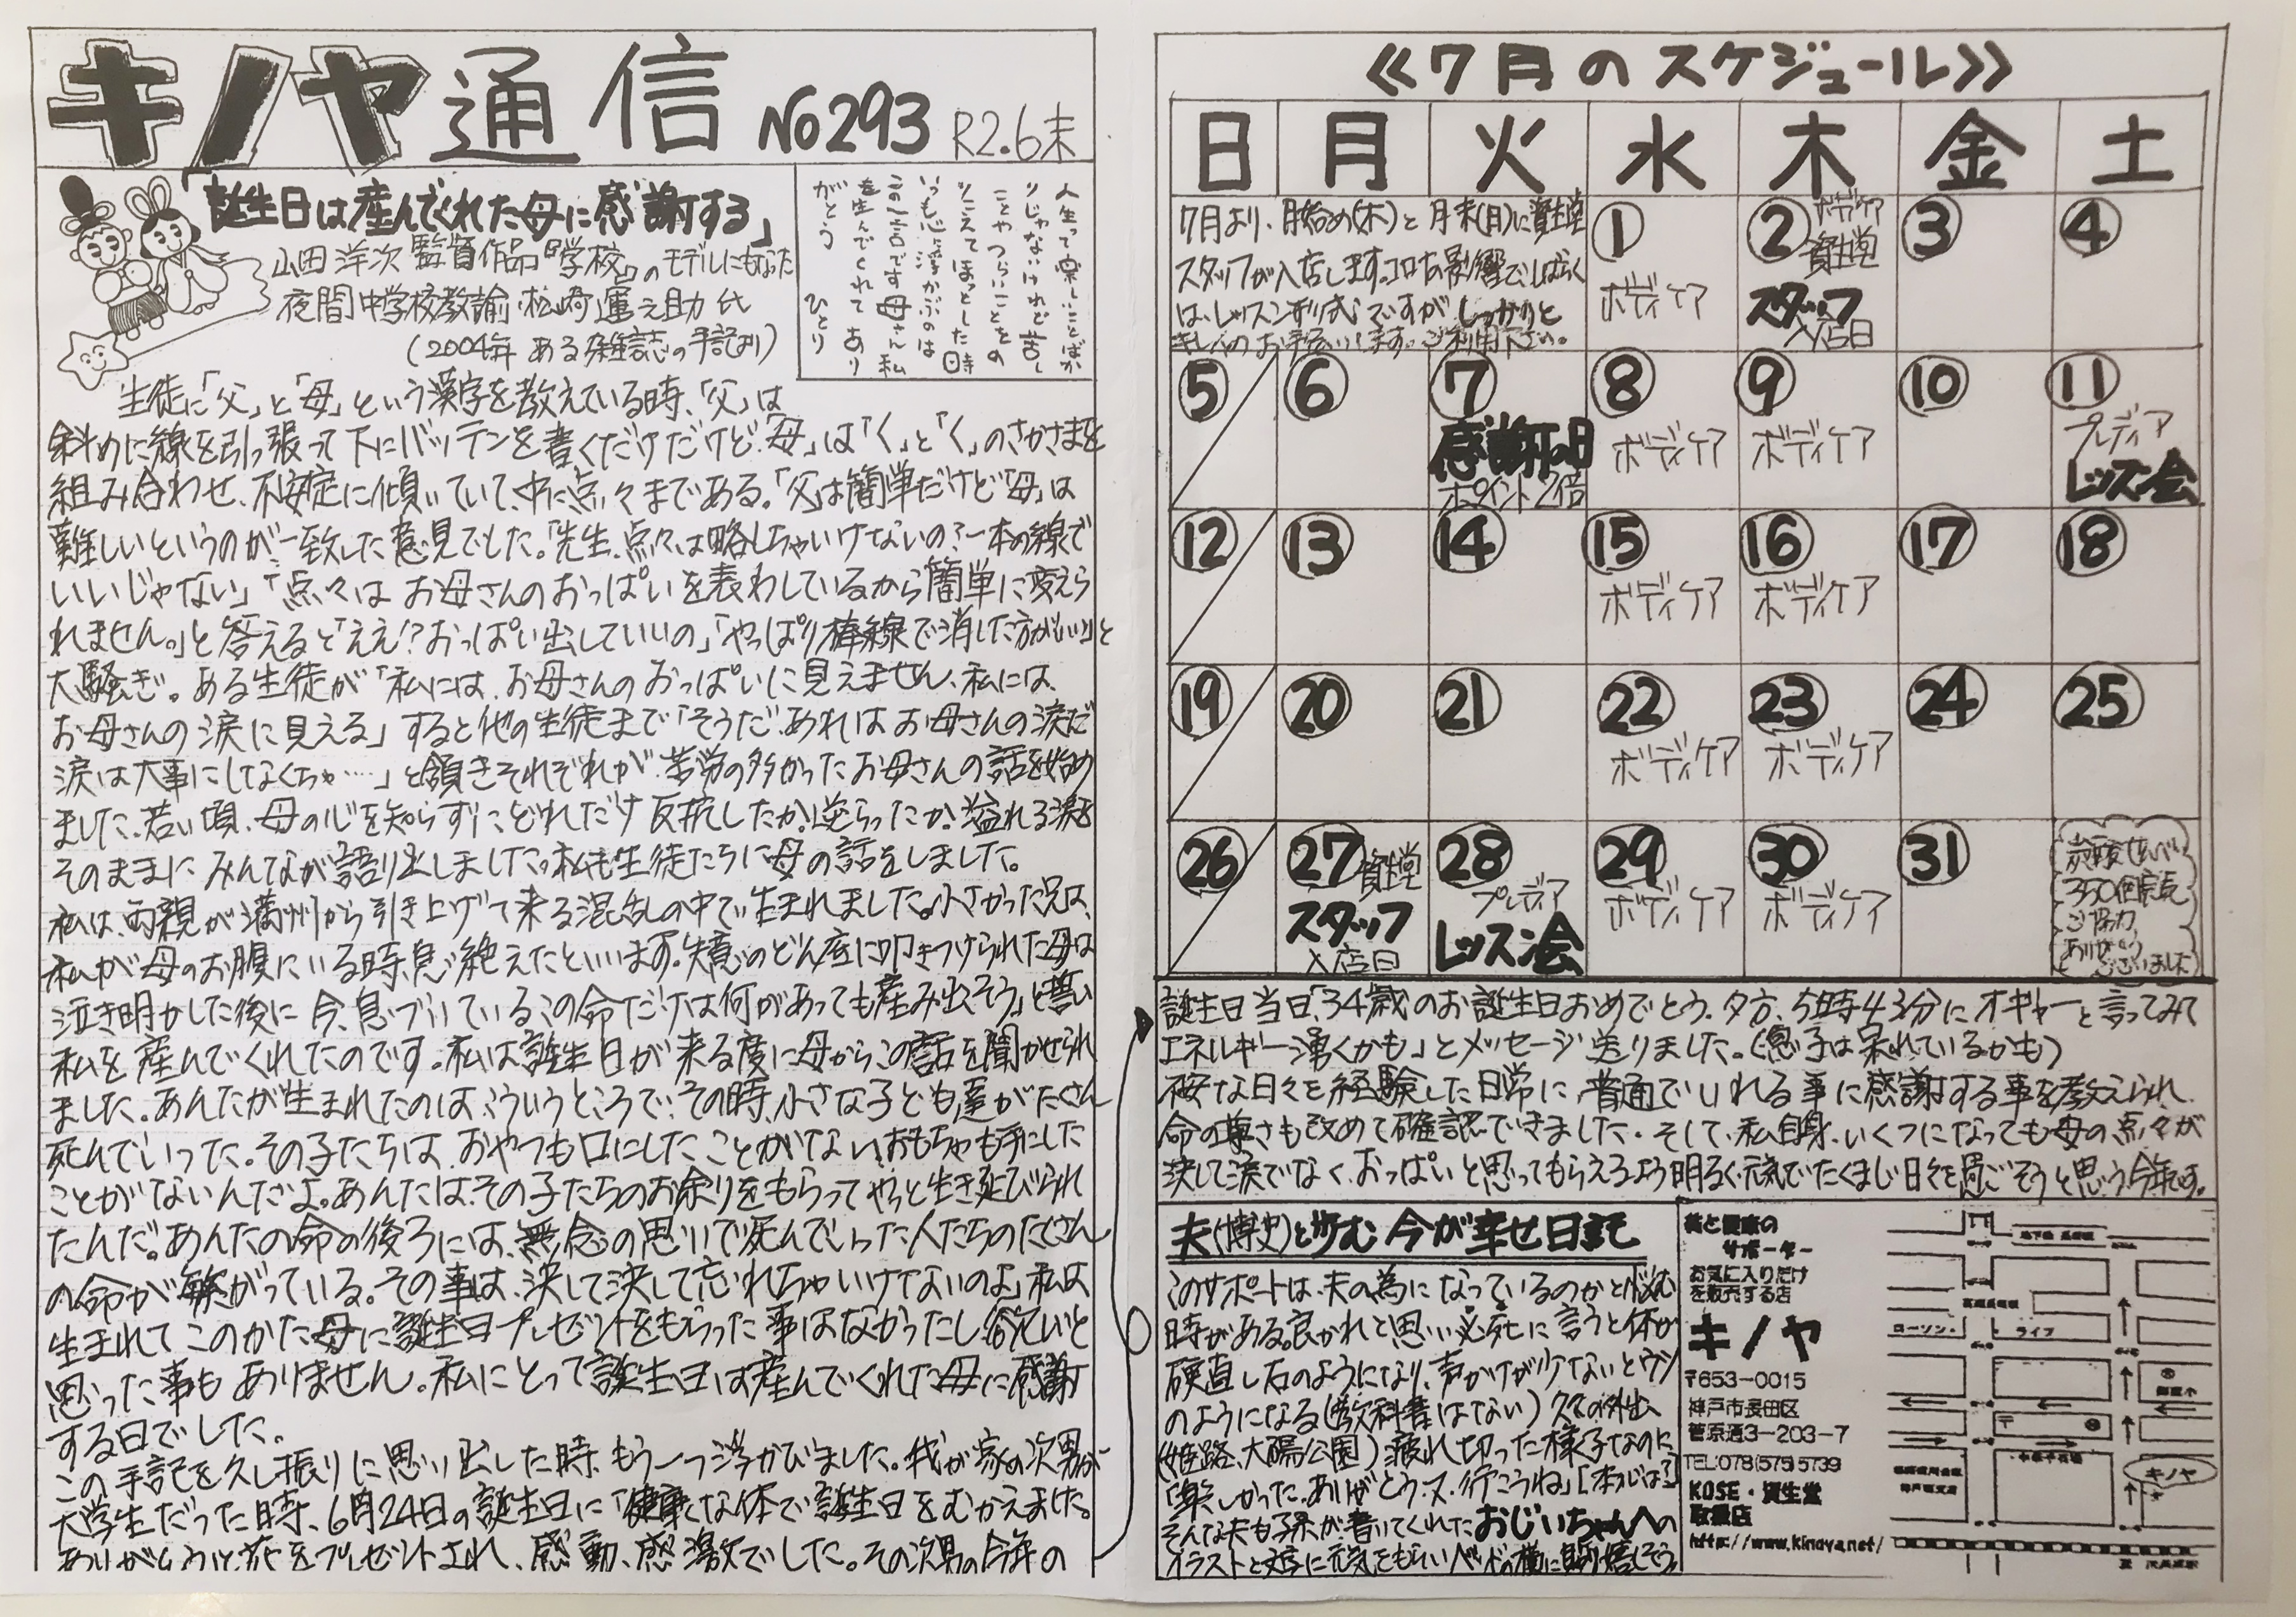 キノヤ通信 No293 R2.6末
「誕生日は産んでくれた母に感謝する」
山田洋次監督作品『学校』のモデルにもなった
夜間中学校教諭・松崎運之助氏
(2004年 ある雑誌の手記より)
人生って楽しいことばか
りじゃないけれど苦し
ことやつらいことをの
りこえてほっとした時
いつも心に浮かぶのは
この一言です母さん私
を生んでくれてあり
がとう ひとり
生徒に「父」と「母」という漢字を教えている時、「父」は
斜めに線を引っ張って下にバッテンを書くだけだけど「母」は「く」と「く」のさかさまを
組み合わせ、不安定に傾いていて、中に点々まである。「父」は簡単だけど「母」は
難しいというのが一致した意見でした。「先生、点々は略しちゃいけないの?一本の線で
いいじゃない」「点々は お母さんのおっぱいを表わしているから簡単に変えら
れません。」と答えると「ええ!?おっぱい出していいの」「やっぱり棒線で消した方がいい」と
大騒ぎ。ある生徒が「私には、お母さんのおっぱいに見えません、私には、
お母さんの涙に見える」すると他の生徒まで「そうだ、あれはお母さんの涙だ
涙は大事にしなくちゃ……」と頷きそれぞれが、苦労の多かったお母さんの話を始め
ました、若い頃、母の心を知らずにどれだけ反抗したか!逆らったか!溢れる涙を
そのままに みんなが語り出しました。私も生徒たちに母の話をしました。
私は、両親が満州から引き上げて来る混乱の中で生まれました。小さかった兄は、
私が母のお腹にいる時、息絶えたといいます。失意のどん底に叩きつけられた母は
泣き明かした後に 今、息づいているこの命だけは何があっても産み出そう」と誓い
私を産んでくれたのです。私は誕生日が来る度に母からこの話を聞かせられ
ました。あんたが生まれたのは、こういうところで、その時、小さな子ども達がたくさん
死んでいった。その子たちは、おやつも口にしたことがない、おもちゃも手にした
ことがないんだよ。あんたは、その子たちのお余りをもらってやっと生き延びられ
たんだ。あんたの命の後ろには、無念の思いで死んでいった人たちのたくさん
の命が繋がっている。その事は、決して決して忘れちゃいけないのよ」私は
生まれてこのかた母に誕生日プレゼントをもらった事はなかったし、祝いと
思った事もありません。私にとって誕生日は産んでくれた母に感謝
する日でした。
この手記を久し振りに思い出した時、もう一つ浮かびました。我が家の次男が
大学生だった時、6月24日の誕生日に「健康な体で誕生日をむかえました。
ありがとう」と花をプレゼントされ、感動、感激でした。その次男の今年の
≪7月のスケジュール≫
日 月 火 水 木 金 土
7月より、月始め(木)と月末(月)に資生堂
スタッフが入店します。コロナの影響でしばらく
は、レッスン形式ですがしっかりと
キレイのお手伝いします。ご利用下さい。
① ② ③ ④
ボディケア
ボディケア
資生堂
スタッフ
入店日
⑤ ⑥ ⑦ ⑧ ⑨ ⑩ ⑪
感謝の日
ポイント2倍
ボディケア ボディケア
プレディア
レッスン会
⑫ ⑬ ⑭ ⑮ ⑯ ⑰ ⑱
ボディケア ボディケア
⑲ ⑳ ㉑ ㉒ ㉓ ㉔ ㉕
ボディケア ボディケア
㉖ ㉗ ㉘ ㉙ ㉚ ㉛
資生堂
スタッフ
入店日
プレディア
レッスン会
ボディケア ボディケア
350個
ご協力
ありがとう
ございました
誕生日当日「34歳のお誕生日おめでとう。夕方、5時43分にオギャーと言ってみて
エネルギー湧くかも」とメッセージ送りました。(息子は呆れているかも)
不安な日々を経験した日常に、普通でいれる事に感謝する事を教えられ、
命の尊さも改めて確認できました。そして、私自身、いくつになっても母の点々が
決して涙でなく、おっぱいと思ってもらえるよう明るく元気でたくましい日々を過ごそうと思う今年です。
夫(博史)と歩む 今が幸せ日記
このサポートは、夫の為になっているのかと悩む
時がある。良かれと思い必死に言うと体が
硬直し石のようになり、声かけが少ないとウソ
のようになる(教科書はない)久々の外出
(姫路、太陽公園)疲れ切った様子なのに、
「楽しかった、ありがとう、又、行こうね」[本心は?]
そんな夫も子孫が書いてくれたおじいちゃんへの
イラストと文字に元気をもらいベッドの横に貼り嬉しそう。
美と健康の
サポーター
お気に入りだけ
を販売する店
キノヤ
〒653-0015
神戸市長田区
菅原通3-203-7
TEL:078(575)5739
KOSE・資生堂
取扱店
http://www.kinoya.net/
ローソン
ライフ
キノヤ